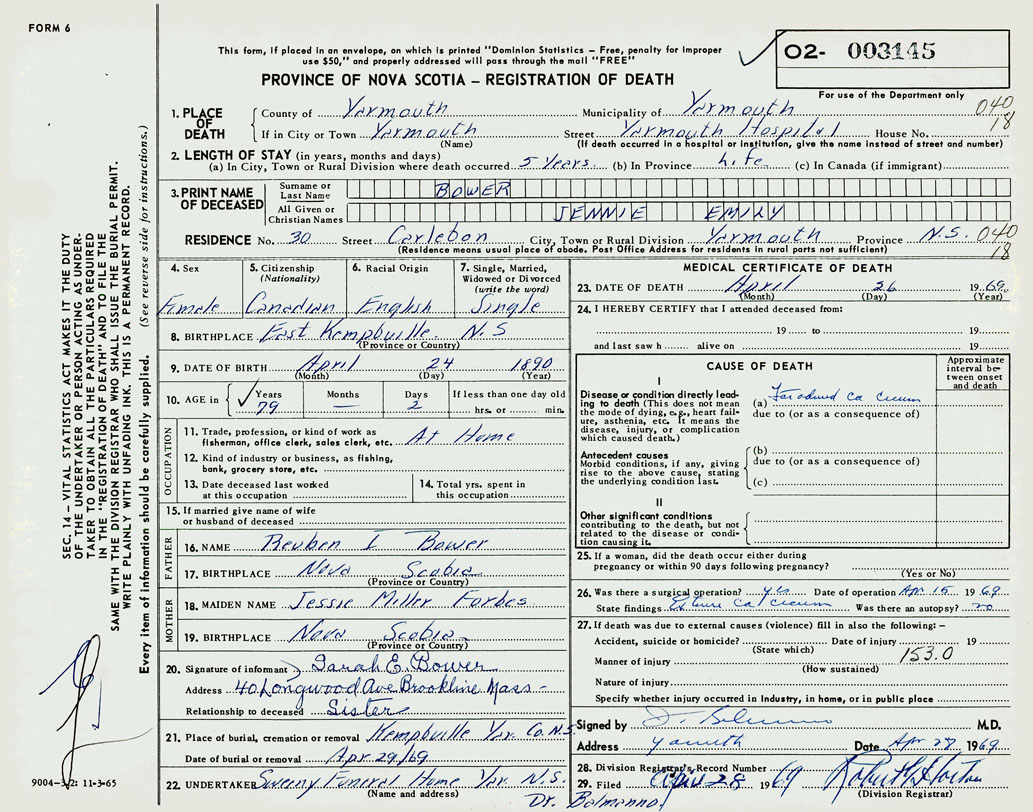 FORM 6
This form, if placed in an envelope, on which is printed "Dominion Statistics – Free, penalty for improper
use $50," and properly addressed will pass through the mail "FREE"
PROVINCE OF NOVA SCOTIA – REGISTRATION OF DEATH
O2- 003145
For use of the Department only
040
18
1. PLACE OF DEATH
County of Yarmouth Municipality of Yarmouth
If in City or Town Yarmouth Street Yarmouth Hospital House No.
(Name) (If death occurred in a hospital or institution, give the name instead of street and number)
2. LENGTH OF STAY (in years, months and days)
(a) In City, Town or Rural Division where death occurred 5 years. (b) In Province Life (c) In Canada (if immigrant)
3. PRINT NAME OF DECEASED
Surname or Last Name BOWER
All Given or Christian Names JENNIE EMILY
RESIDENCE No. 30 Street Carlebon City, Town or Rural Division Yarmouth Province N.S. 040
18
(Residence means usual place of abode. Post Office Address for residents in rural parts not sufficient)
4. Sex
Female
5. Citizenship
(Nationality)
Canadian
6. Racial Origin
English
7. Single, Married,
Widowed or Divorced
(write the word)
Single
8. BIRTHPLACE East Kemptville N.S
(Province or Country)
9. DATE OF BIRTH April 24 1890
(Month) (Day) (Year)
10. AGE in Years Months Days If less than one day old
79 — 2 hrs. or min.
OCCUPATION
11. Trade, profession, or kind of work as
fisherman, office clerk, sales clerk, etc. At Home
12. Kind of industry or business, as fishing,
bank, grocery store, etc.
13. Date deceased last worked
at this occupation
14. Total yrs. spent in
this occupation
15. If married give name of wife
or husband of deceased
FATHER
16. NAME Reuben I Bower
17. BIRTHPLACE Nova Scotia
(Province or Country)
MOTHER
18. MAIDEN NAME Jessie Miller Forbes
19. BIRTHPLACE Nova Scotia
(Province or Country)
20. Signature of informant Sarah E. Bower
Address 40 Longwood Ave Brookline Mass –
Relationship to deceased Sister
21. Place of burial, cremation or removal Kemptville Yar. Co. N.S.
Date of burial or removal Apr. 29/69
22. UNDERTAKER Sweeny Funeral Home Yar. N.S.
(Name and address)
MEDICAL CERTIFICATE OF DEATH
23. DATE OF DEATH April 26 1969
(Month) (Day) (Year)
24. I HEREBY CERTIFY that I attended deceased from:
19 to 19
and last saw h alive on 19
CAUSE OF DEATH
Approximate interval between onset and death
I
Disease or condition directly leading to death (This does not mean the mode of dying, e.g., heart failure, asthenia, etc. It means the disease, injury, or complication which caused death.)
(a) ca cecum
due to (or as a consequence of)
Antecedent causes
Morbid conditions, if any, giving rise to the above cause, stating the underlying condition last.
(b)
due to (or as a consequence of)
(c)
II
Other significant conditions contributing to the death, but not related to the disease or condition causing it.
25. If a woman, did the death occur either during
pregnancy or within 90 days following pregnancy?
(Yes or No)
26. Was there a surgical operation? yes Date of operation Apr. 15 1969
State findings ca cecum Was there an autopsy? no
27. If death was due to external causes (violence) fill in also the following: –
Accident, suicide or homicide? Date of injury 19
(State which)
153.0
Manner of injury
(How sustained)
Nature of injury
Specify whether injury occurred in industry, in home, or in public place
Signed by M.D.
Address Date Apr 28 1969
28. Division Registrar's Record Number
29. Filed April 28 1969
(Division Registrar)
Dr. Balmanno
SEC. 14 – VITAL STATISTICS ACT MAKES IT THE DUTY
OF THE UNDERTAKER OR PERSON ACTING AS UNDER-
TAKER TO OBTAIN ALL THE PARTICULARS REQUIRED
IN THE "REGISTRATION OF DEATH" AND TO FILE THE
SAME WITH THE DIVISION REGISTRAR WHO SHALL ISSUE THE BURIAL PERMIT.
WRITE PLAINLY WITH UNFADING INK. THIS IS A PERMANENT RECORD.
Every item of information should be carefully supplied. (See reverse side for instructions.)
9004-3/2: 11-3-65